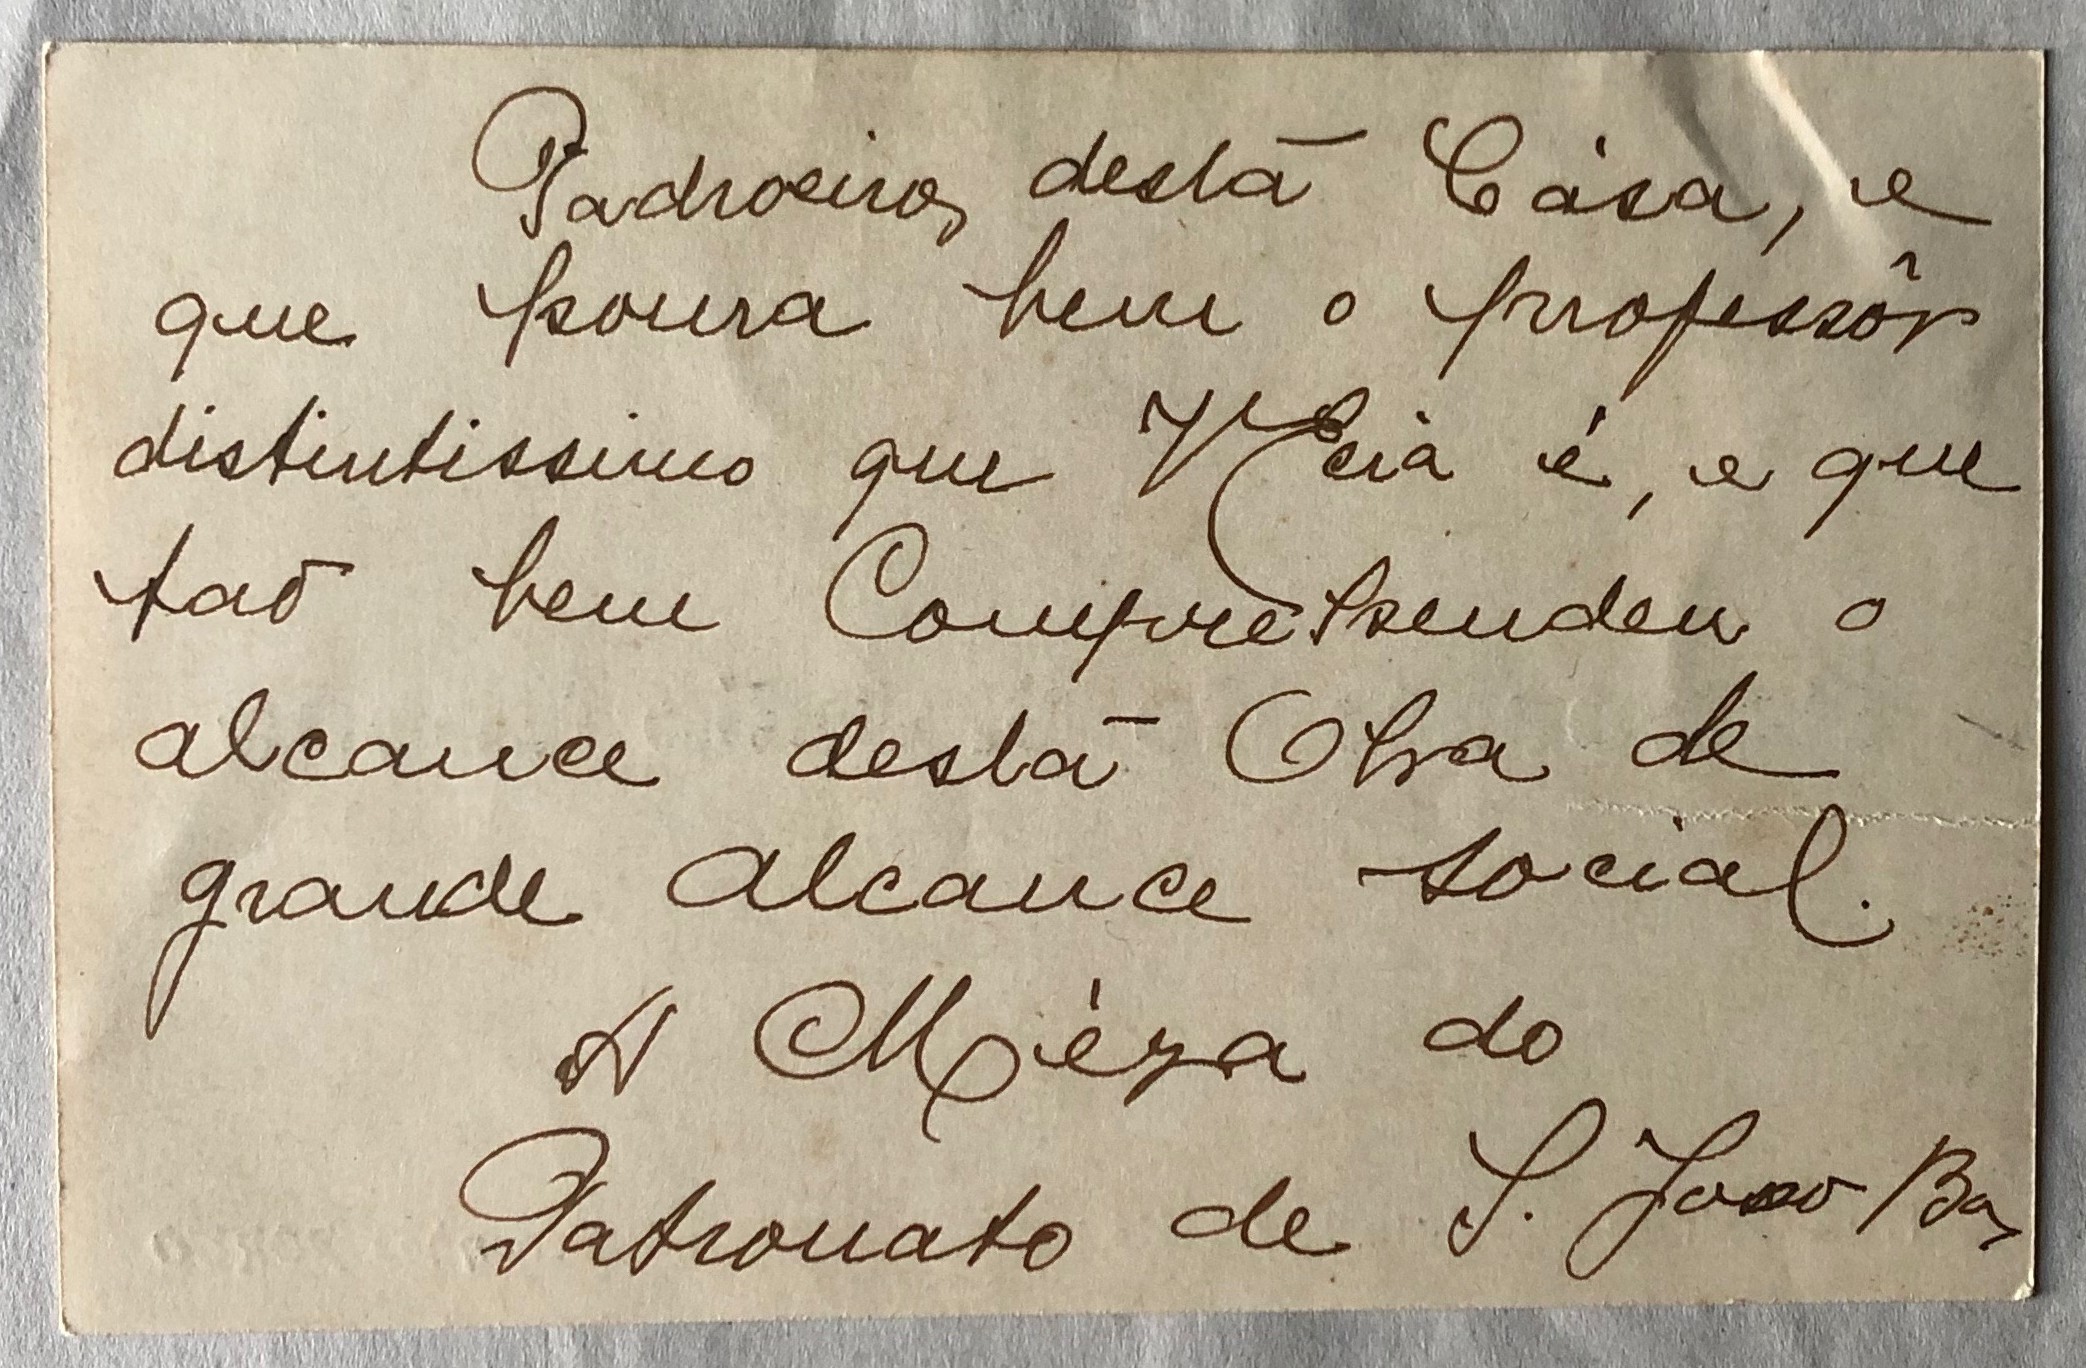 Padroeiro, destã Cása, e
que houra bem o professôr
distintissimo que V Ecià é, e que
taõ bem Comprehendeu o
alcance destã Obra de
grande alcance social.
A Mèza do
Patronato de S. João Ba,